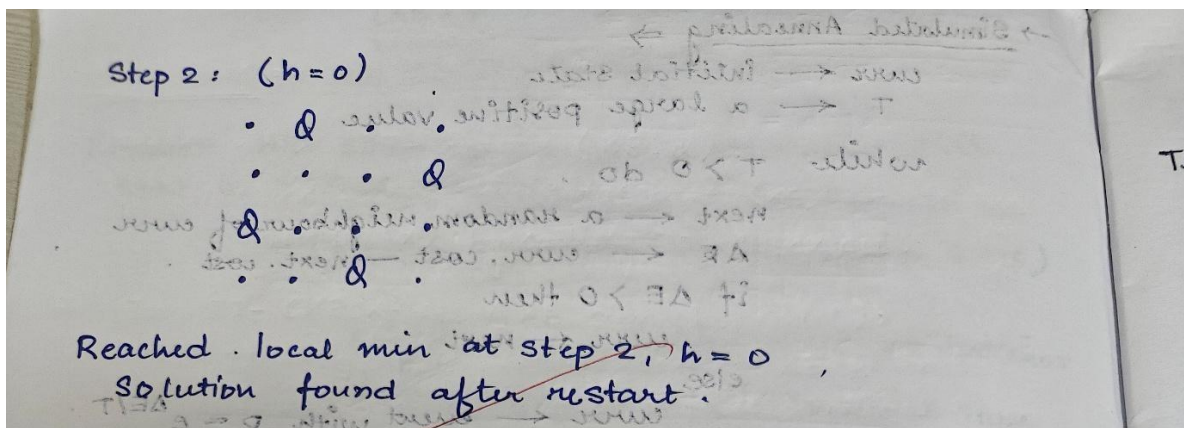 Step 2 : (h=0)
. Q . .
. . . Q
Q . . .
. . Q .
Reached local min at step 2, h = 0 ,
Solution found after restart.
T.